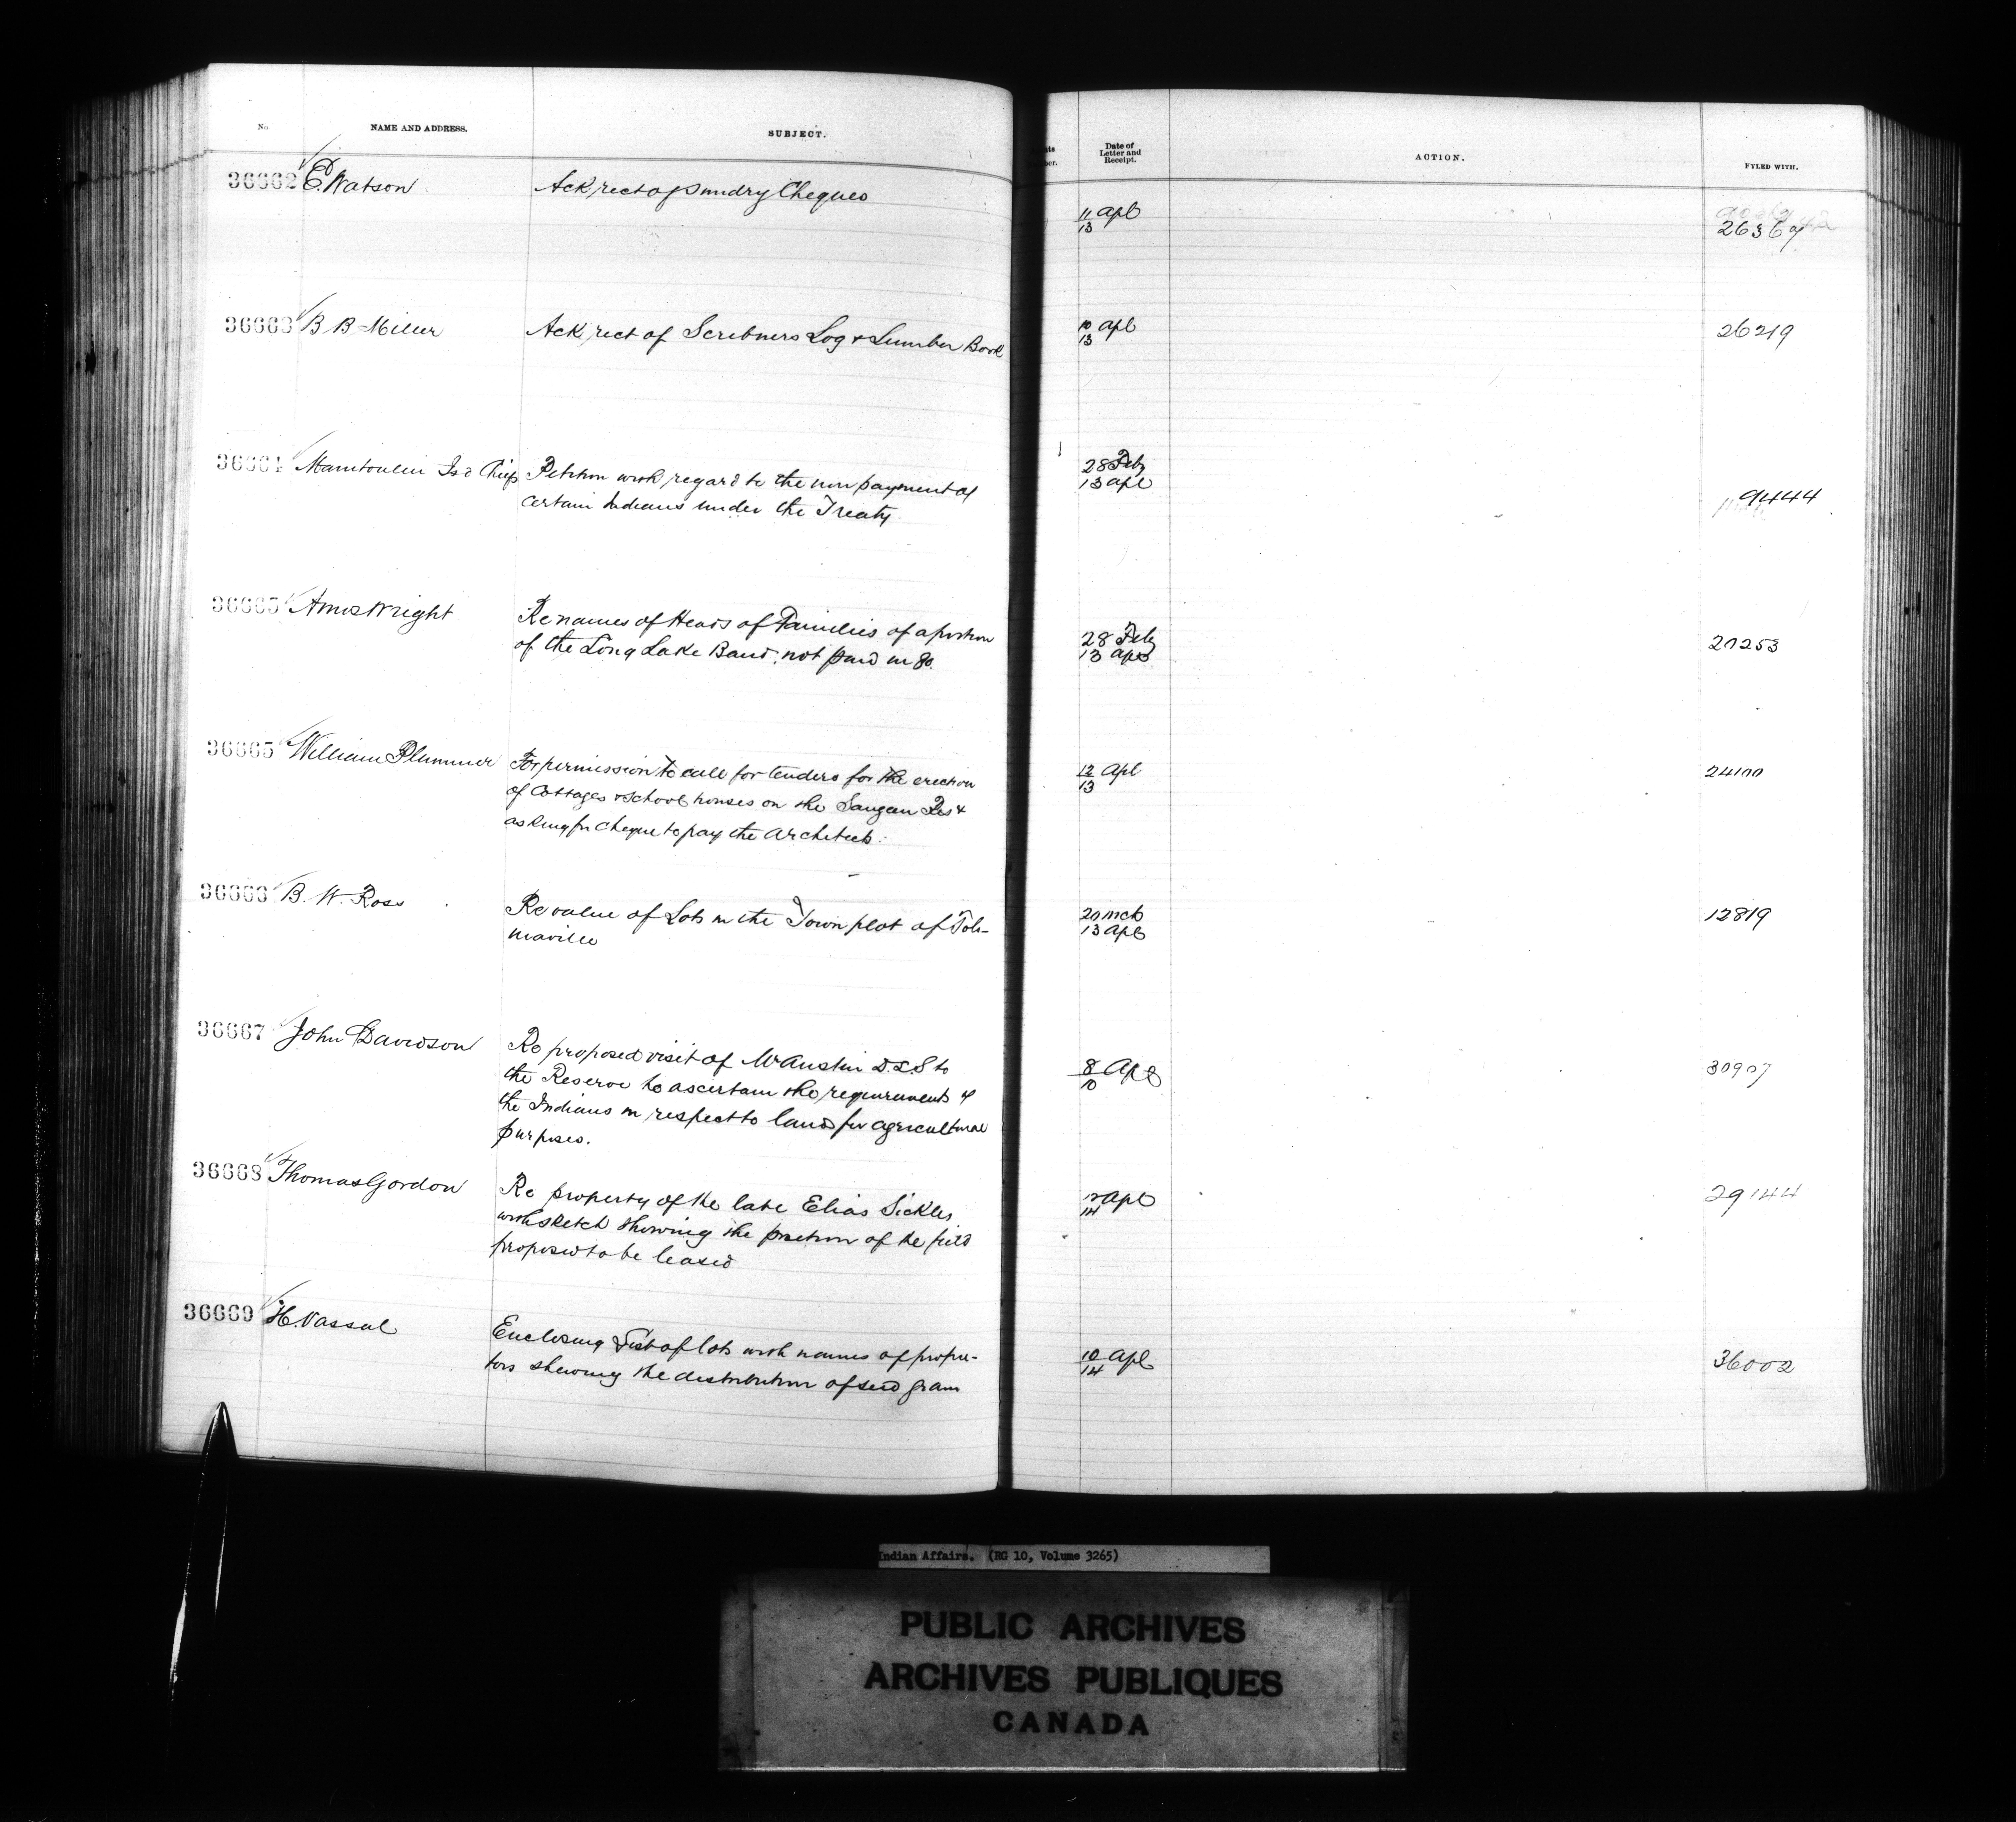 No. NAME AND ADDRESS. SUBJECT.
Date of Letter and Receipt. ACTION. FYLED WITH.
36662 E. Watson Ack rect of Sundry Cheques 11/13 Apl 26367
36663 B B Miller Ack rect of Scribners Log & Lumber Book 10/13 Apl 26219
36664 Manitoulin Isd Chiefs Petition with regard to the non payment of
certain Indians under the Treaty.
28 Feby
13 Apl
9444
36665 Amos Wright Re names of Heads of Families of a portion
of the Long Lake Band, not paid in 80.
28 Feby
13 Apl
20253
36665 William Plummer For permission to call for tenders for the erection
of Cottages & School houses on the Saugeen Res &
asking for Cheque to pay the Architect.
12/13 Apl
24100
36666 B. W. Ross Re value of Lots in the Town plot of Toli-
maville
20 Mch
13 Apl
12819
36667 John Davidson Re proposed visit of Mr Austin D.L.S to
the Reserve to ascertain the requirements of
the Indians in respect to land for agricultural
purposes.
8/10 Apl
30907
36668 Thomas Gordon Re property of the late Elias Sickles
with sketch showing the portion of the field
proposed to be leased
12/14 Apl
29144
36669 H. Vassal Enclosing List of lots with names of proprie-
tors shewing the distribution of seed grain
10/14 Apl
36002
Indian Affairs. (RG 10, Volume 3265)
PUBLIC ARCHIVES
ARCHIVES PUBLIQUES
CANADA